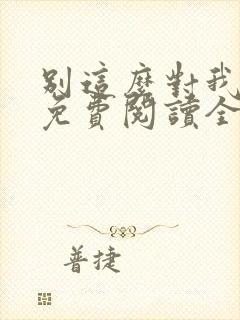 別這麼對我
免費閱讀全
普捷